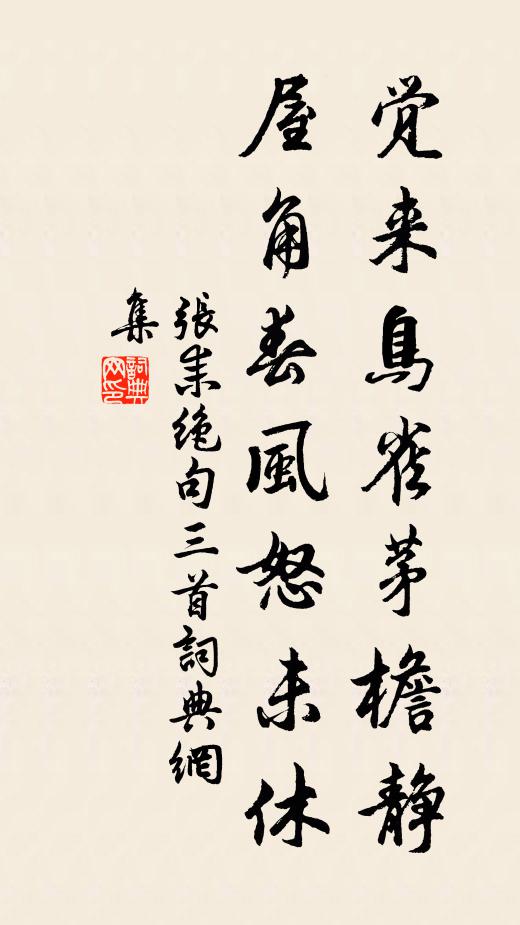 觉来鳥雀茅檐静
屋角春風怒未休
張耒绝句三首詞典網
集
詞典
网印